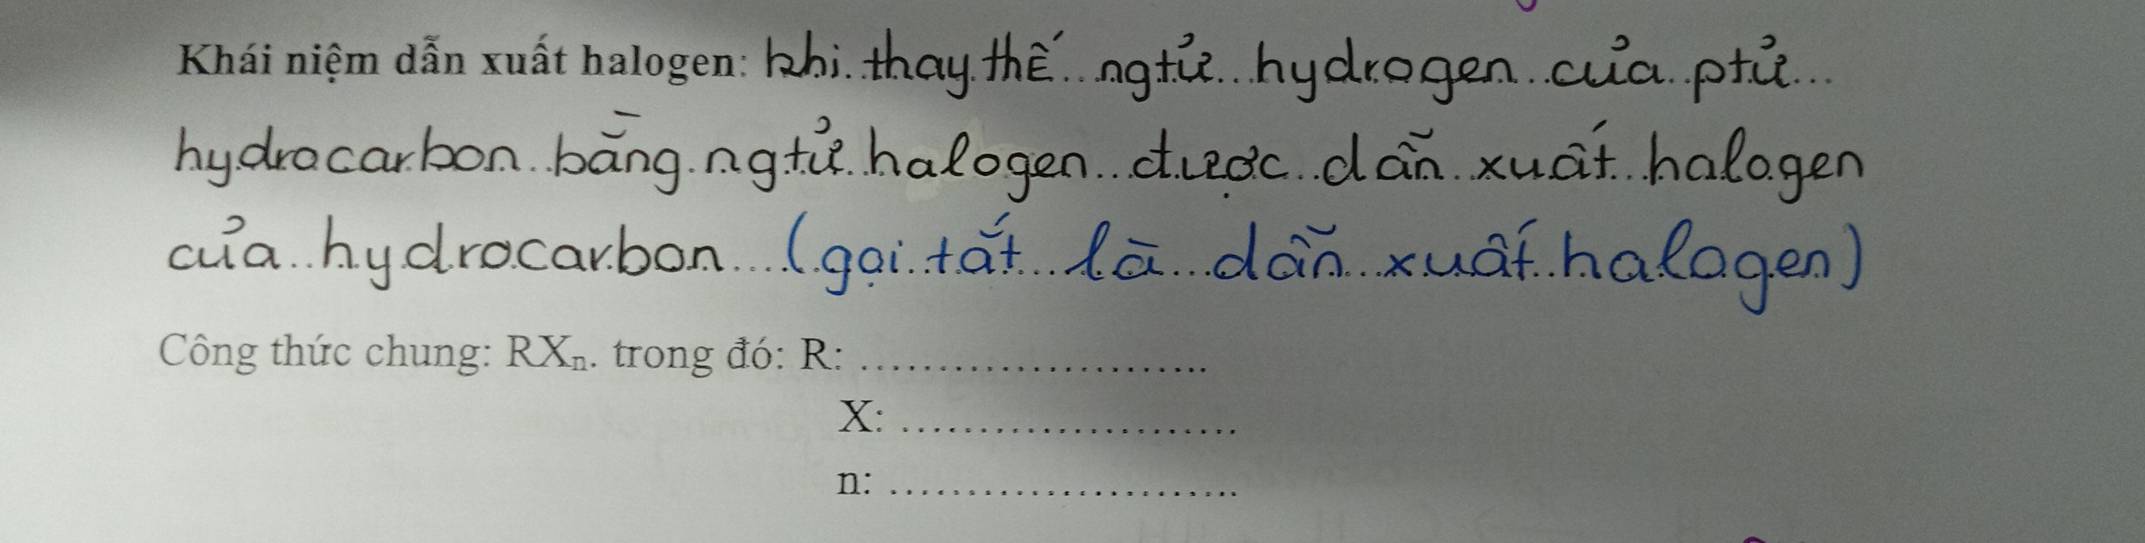 Khái niệm dẫn xuất halogen: khi thay thế ngtử hydrogen của ptử
hydrocarbon bằng ngtử halogen được dẫn xuất halogen
của hydrocarbon (gọi tắt là dẫn xuất halogen)
Công thức chung: RXₙ. trong đó: R: ........................
X: ........................
n: ........................